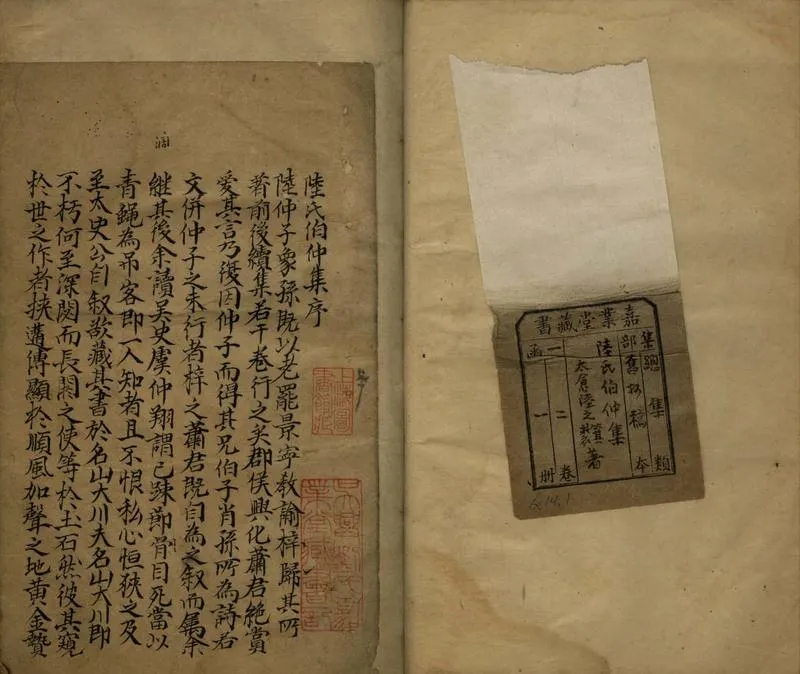 嘉業堂藏書
集部
總集類
舊抄稿本
陸氏伯仲集
太倉陸之箕
裘著
二卷
一函
一册
陸氏伯仲集序
陸仲子象孫既以老罷景寧教諭梓歸其所
著前後續集若干卷行之矣郡侯興化蕭君絶賞
愛其言乃復因仲子而得其兄伯子肖孫所為詩若
文併仲子之未行者梓之蕭君既自為之叙而属余
継其後余讀吴史虞仲翔謂已踈節骨目死當以
青蝇為吊客即一人知者且不恨私心恒狹之及
至太史公自叙欲藏其書於名山大川夫名山大川即
不朽何至深閟而長閟之使等於土石然彼其窺
於世之作者挟遭傅顯於順風加聲之地黄金贄
上海圖書館藏
吳興劉氏嘉業堂藏書印